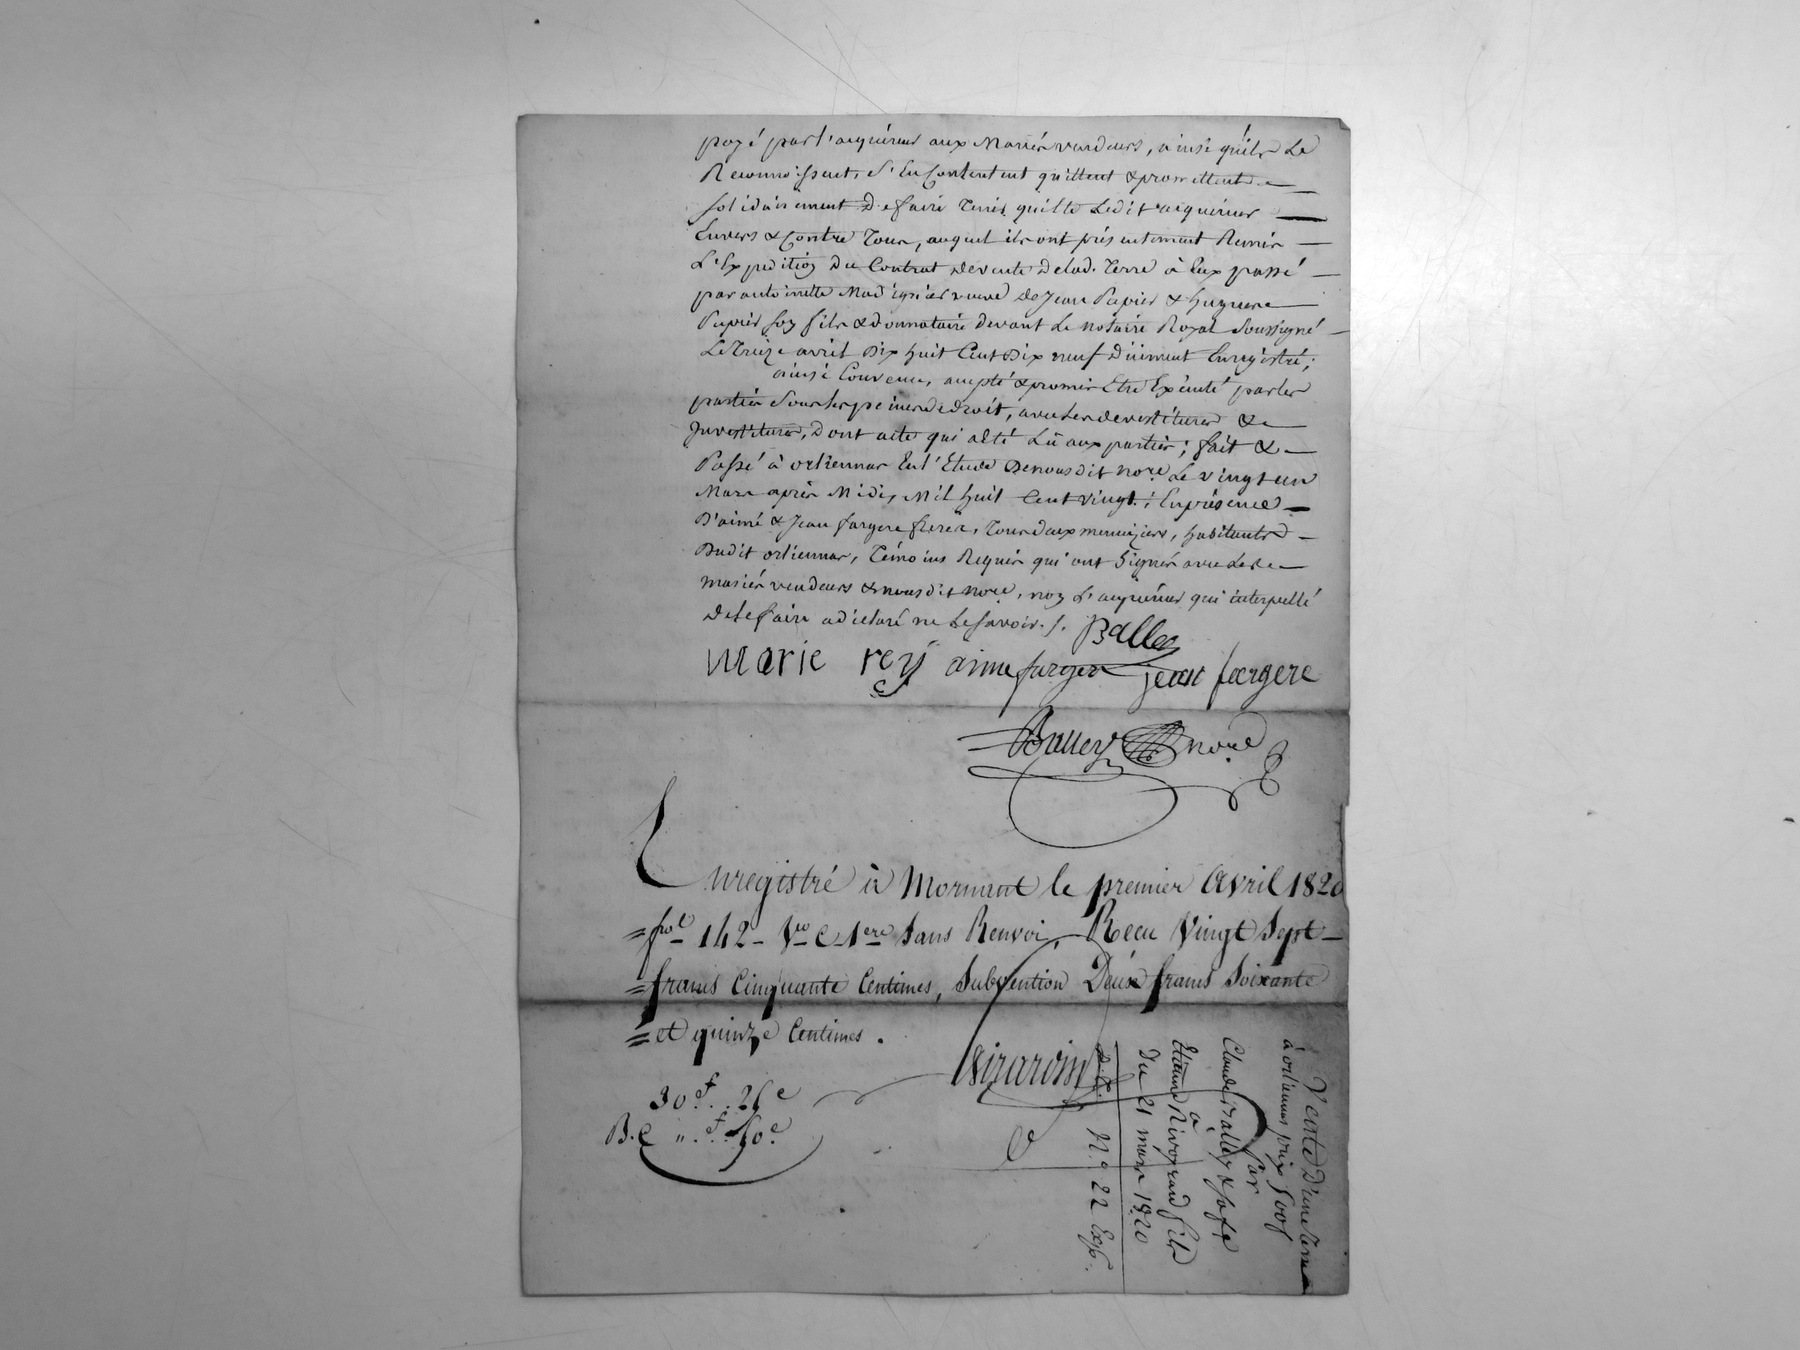 payé par l'acquéreur aux Mariés vendeurs, ainsi qu'ils Le
Reconnoissent, S'en Contentent quittent & promettent
solidairement De faire Tenir quitte Ledit acquéreur
Envers & Contre Tous, auquel ils ont présentement Remis
L'Expedition Du Contrat De vente De lad. Terre à Eux passé
par antoinette Madignier veuve de Jean Papier & hugues
Papier son fils & Donnataire devant Le notaire Royal Soussigné
Le Treize avril Dix huit Cent Dix neuf Dûement Enregistré;
ainsi Convenu, accepté & promis Etre Exécuté par les
parties Sous les peines de droit, avec les devestitures &
Investitures, Dont acte qui a été Lû aux parties; fait &
Passé à orliennas En l'Etude De nous dit nore. Le vingt un
Mars après Midi, Mil huit Cent vingt; En présence
D'aimé & Jean fargere freres, Tous deux menuiziers, habitants
Dudit orliennas, Témoins Requis qui ont Signés avec Les
mariés vendeurs & nous dit nore, non L'acquéreur qui interpellé
De le faire a déclaré ne Le Savoir./.
Balley
Marie rey aime fargere jean faergere
Balley nore
Enregistré à Mornant le premier Avril 1820
fol 142 - Vo C 1ere Sans Renvoi, Recu Vingt Sept
francs Cinquante Centimes, Subvention Deux francs Soixante
et quinze Centimes.
Girardin
30f.. 25c
B.e "f.. 50c
Vente D'une Terre
à orliennas prix 500f
Par
Claude Balley & Sa fe
à
Etienne Rivoirard fils
Du 21 mars 1820
N.o 22 Exp.